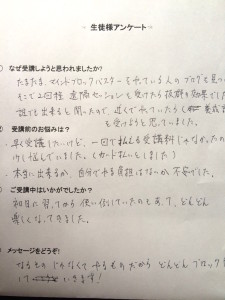 生徒様アンケート
なぜ受講しようと思われましたか?
たまたま、マインドブロックバスターをやっている人のブログを見
そこで2回程 セッションを受けたら抜群の効果でした
誰でも出来ると聞いたので、近くでやっていたら
を受けようと思っていました。
② 受講前のお悩みは?
・早く受講したいけど、一回で払える受講料じゃなかったの
けし悩んでいました。(カード払いをしました)
・本当に出来るか、自分でやる自信はないか不安でした。
ご受講中はいかがでしたか?
初日に習ってから使い倒していたのもあって、どんどん
楽しくなってきました。
メッセージをどうぞ!
なるものじゃなくてやるものだから どんどんブロック
いきます!